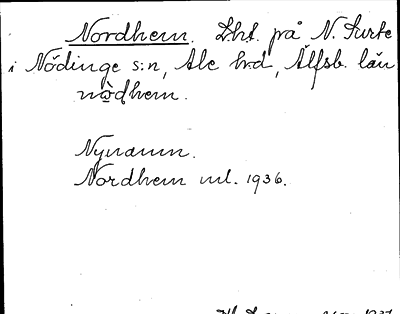 Nordhem. Lht. på N. Surte
i Nödinge s:n, Ale h:d, Älfsb. län
nὼḍhem.
Nynamn.
Nordhem ml. 1936.
1937